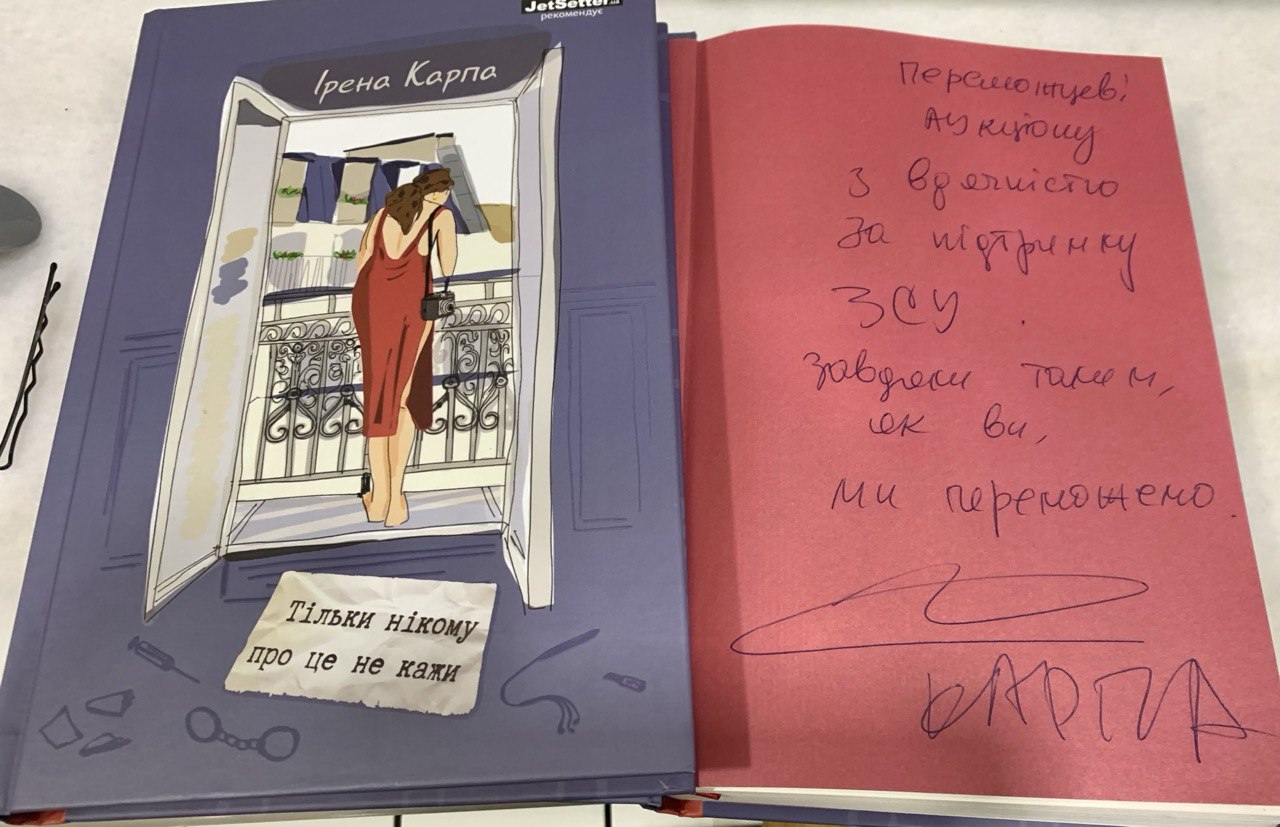 JetSetter.ua
рекомендує
Ірена Карпа
Тільки нікому
про це не кажи
Переможцеві
Аукціону
з вдячністю
за підтримку
ЗСУ.
Завдяки таким,
як ви,
ми переможемо.
КАРПА